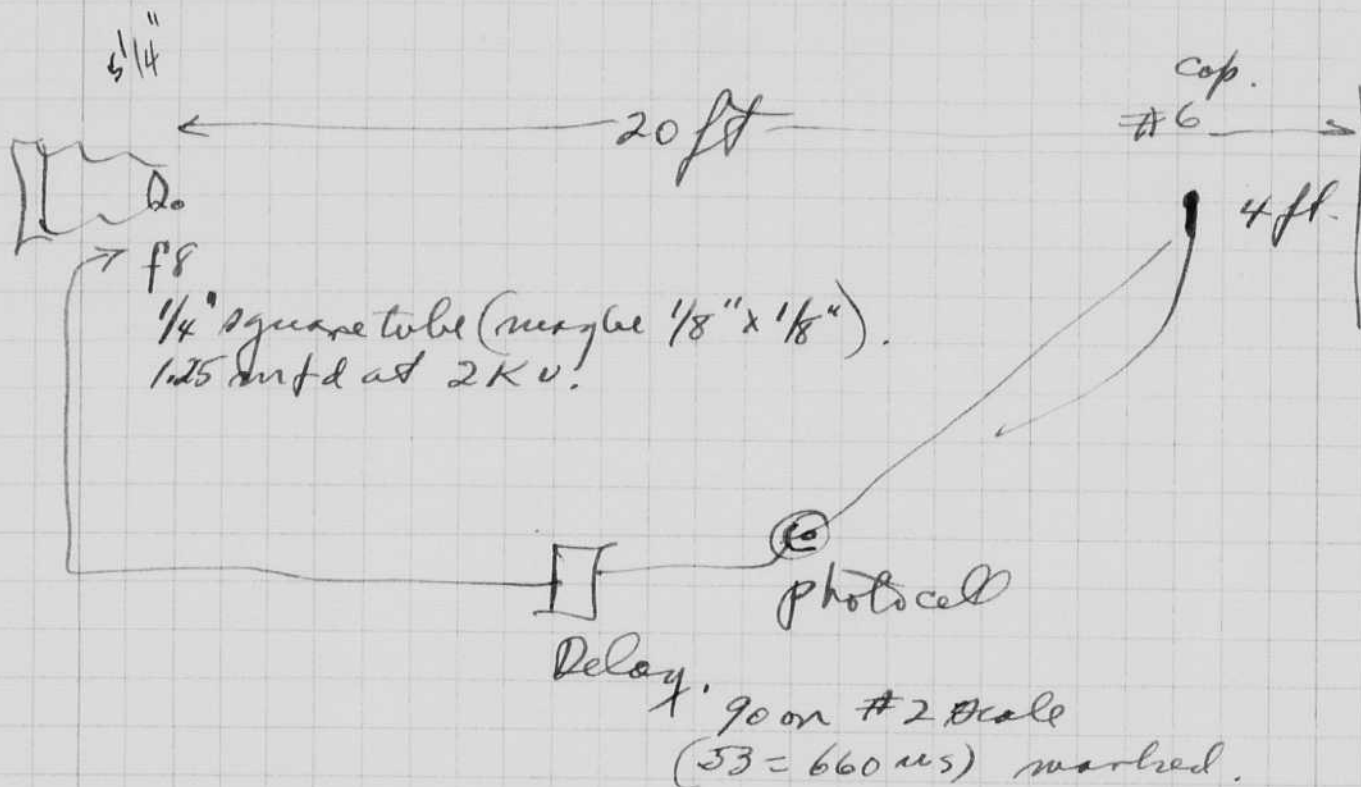 5 1/4"
20 ft
cap.
#6
4 ft.
f8
1/4" square tube (maybe 1/8" x 1/8").
1.25 mfd at 2 Kv.
photocell
Delay.
90 on #2 scale
(53 = 660 us) marked.